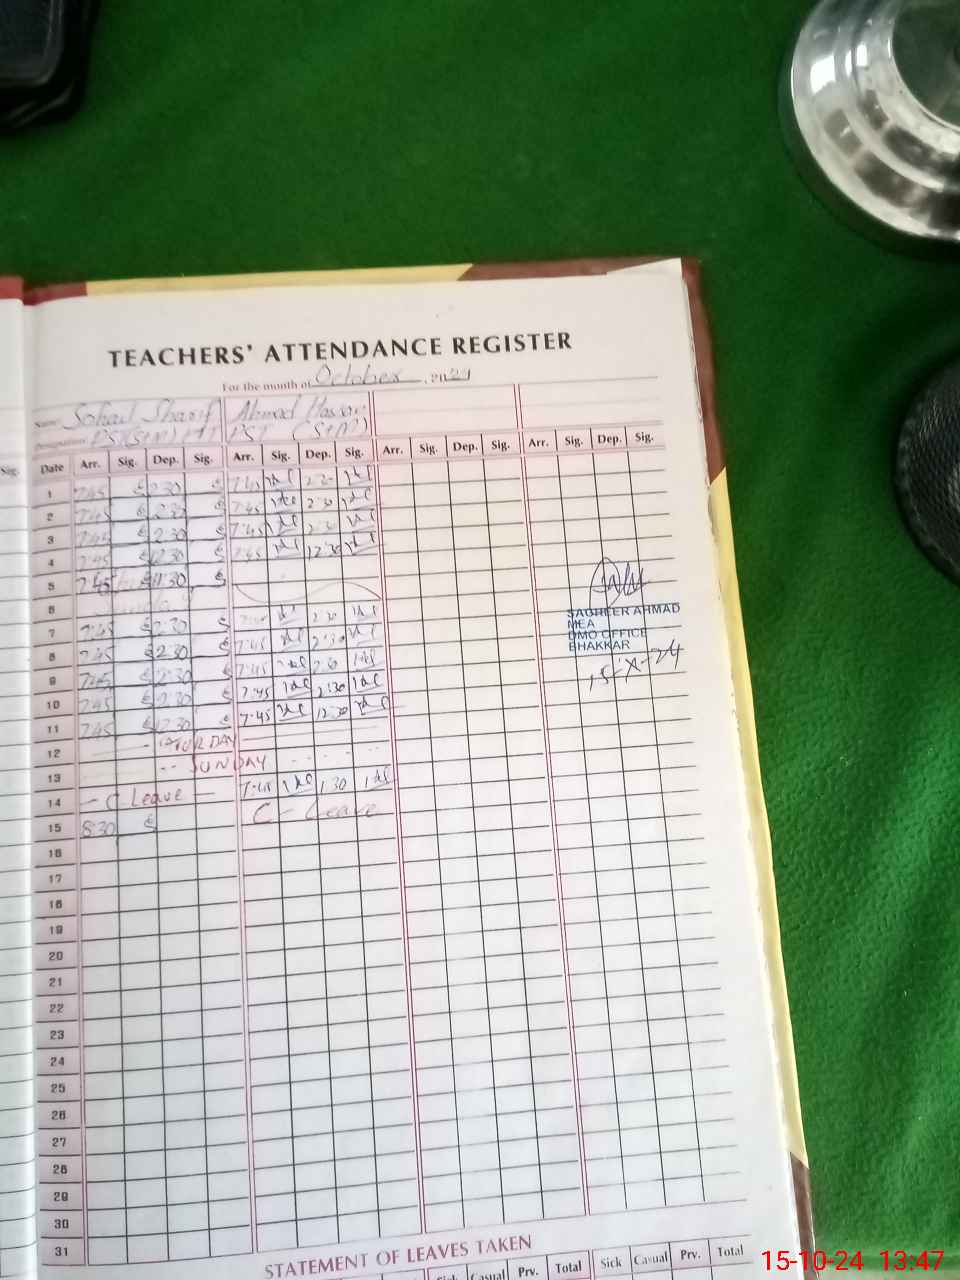 TEACHERS' ATTENDANCE REGISTER
For the month of October, 2024
Name Sohail Sharif Ahmad Hassan
Designation PST (S+M) PST (S+M)
Sig. Date Arr. Sig. Dep. Sig. Arr. Sig. Dep. Sig. Arr. Sig. Dep. Sig. Arr. Sig. Dep. Sig.
1 7:45 2:30 7:45 2:30
2 7:45 2:30 7:45 2:30
3 7:45 2:30 7:45 2:30
4 7:45 12:30 7:45 12:30
5 7:45 11:30
6 Sunday
7 7:45 2:30 2:30
8 7:45 2:30 7:45 2:30
9 7:45 2:30 7:45 2:30
10 7:45 2:30 7:45 2:30
11 7:45 12:30 7:45 12:30
12 SATURDAY
13 SUNDAY
14 C Leave 7:45 1:30
15 8:30 C - Leave
16
17
18
19
20
21
22
23
24
25
26
27
28
29
30
31
SAGHEER AHMAD
MEA
DMO OFFICE
BHAKKAR
15-X-24
STATEMENT OF LEAVES TAKEN
Sick Casual Prv. Total Sick Casual Prv. Total
15-10-24 13:47